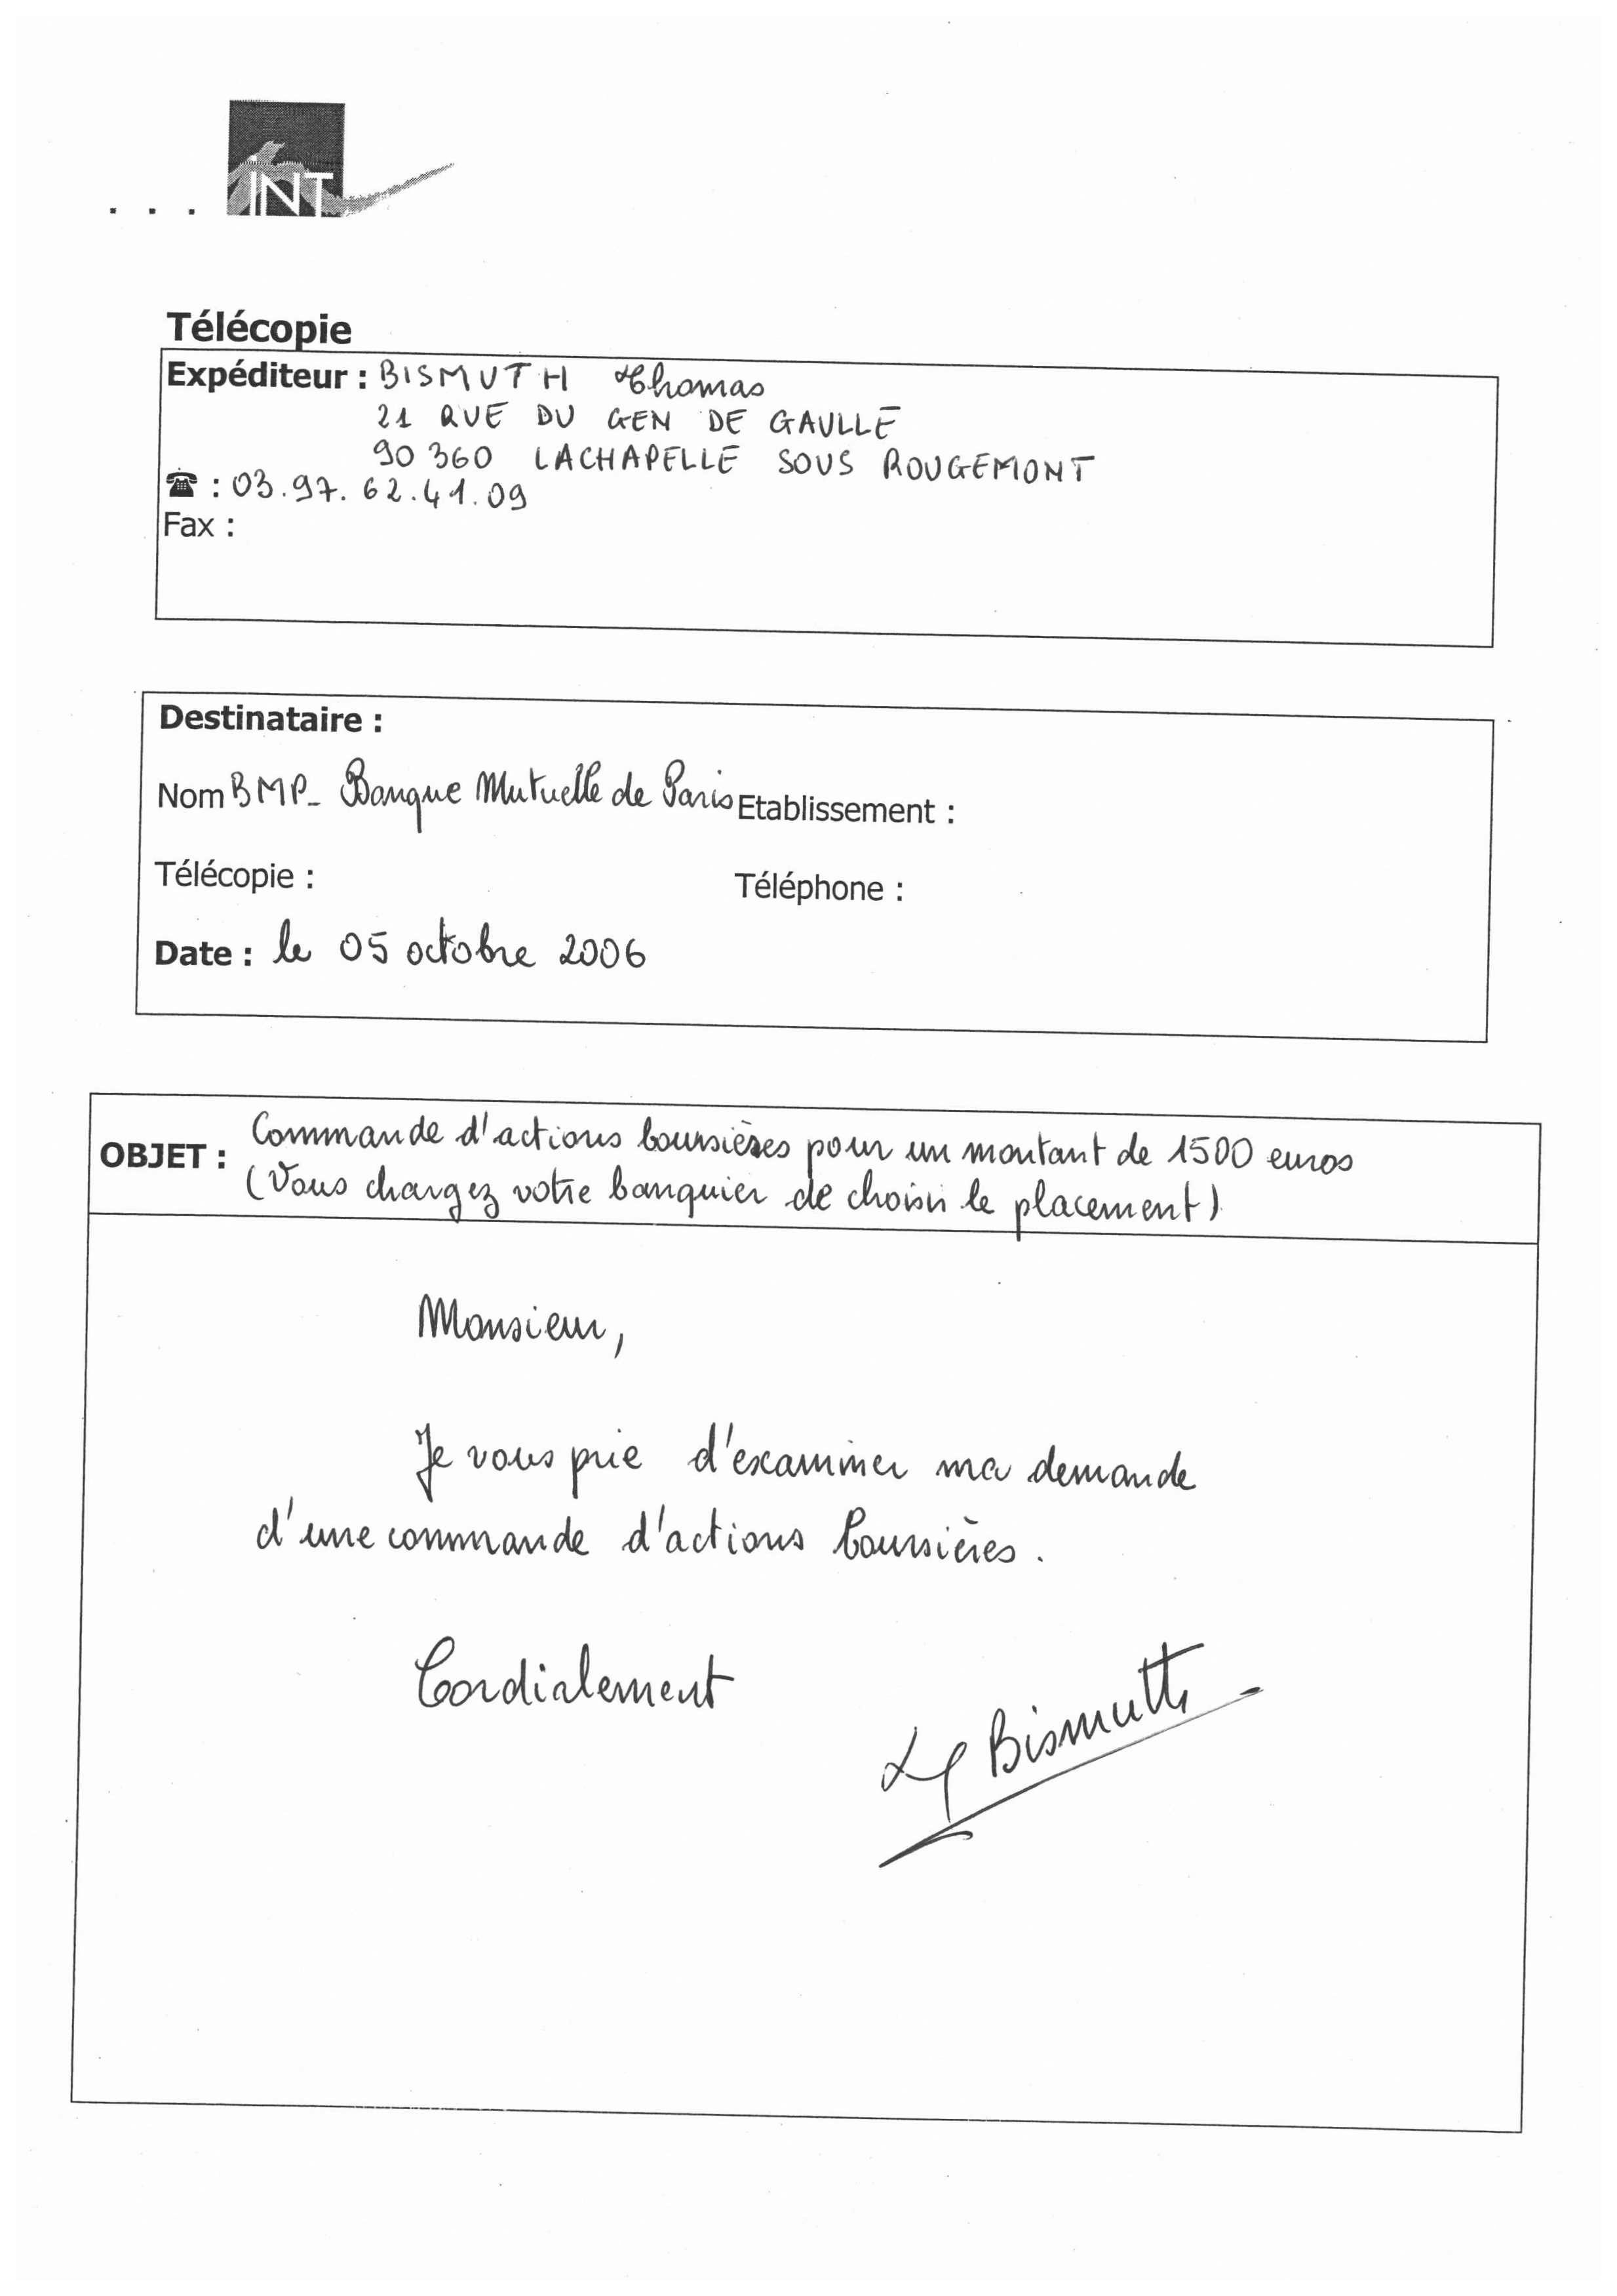 . . . INT
Télécopie
Expéditeur : BISMUTH Thomas
21 RUE DU GEN DE GAULLE
90 360 LACHAPELLE SOUS ROUGEMONT
☎ : 03.97.62.41.09
Fax :
Destinataire :
Nom BMP_ Banque Mutuelle de Paris Etablissement :
Télécopie : Téléphone :
Date : le 05 octobre 2006
OBJET : Commande d'actions boursières pour un montant de 1500 euros
(Vous chargez votre banquier de choisir le placement)
Monsieur,
Je vous prie d'examiner ma demande
d'une commande d'actions boursières.
Cordialement
Bismuth